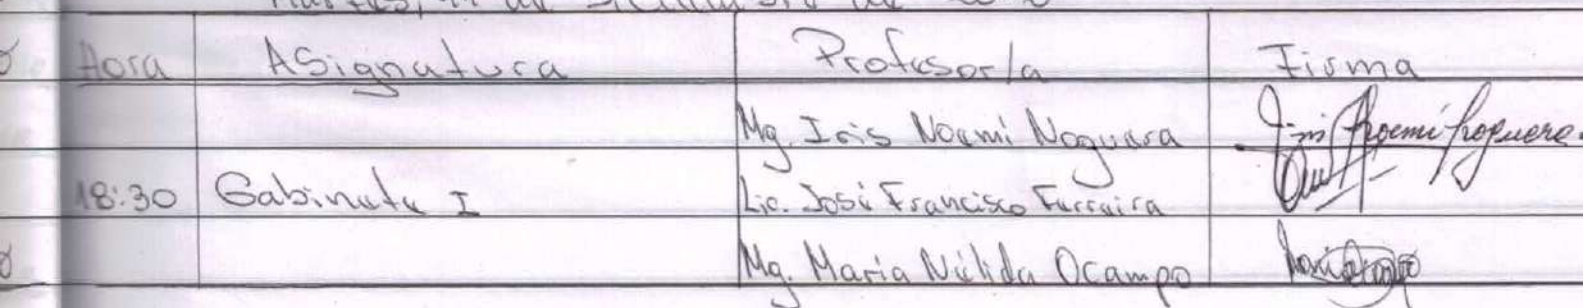 Hora Asignatura Profesor/a Firma
Mg. Iris Noemí Noguera Iris Noemí Noguera
18:30 Gabinete I Lic. José Francisco Ferreira
Mg. María Nélida Ocampo